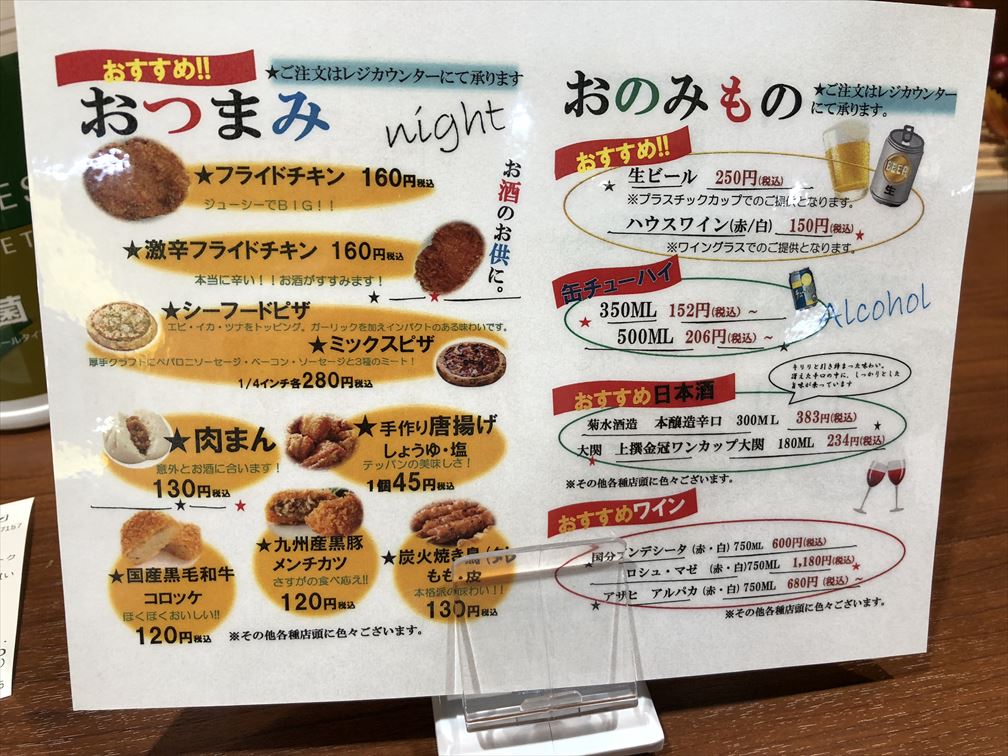 おすすめ!!
★ご注文はレジカウンターにて承ります
おつまみ
night
お酒のお供に。
★フライドチキン 160円税込
ジューシーでBIG!!
★激辛フライドチキン 160円税込
本当に辛い!!お酒がすすみます!
★シーフードピザ
エビ・イカ・ツナをトッピング。ガーリックを加えインパクトのある味わいです。
★ミックスピザ
厚手クラフトにペパロニソーセージ・ベーコン・ソーセージと3種のミート!
1/4インチ各280円税込
★肉まん
意外とお酒に合います!
130円税込
★手作り唐揚げ
しょうゆ・塩
テッパンの美味しさ!
1個45円税込
★国産黒毛和牛
コロッケ
ほくほくおいしい!!
120円税込
★九州産黒豚
メンチカツ
さすがの食べ応え!!
120円税込
★炭火焼き鳥(タレ
もも・皮
本格派の味わい!!
130円税込
※その他各種店頭に色々ございます。
おのみもの
★ご注文はレジカウンター
にて承ります。
おすすめ!!
BEER
生
生ビール 250円(税込)
※プラスチックカップでのご提供となります。
ハウスワイン(赤/白) 150円(税込)
※ワイングラスでのご提供となります。
缶チューハイ
Alcohol
350ML 152円(税込)~
500ML 206円(税込)~
キリリと引き締まった味わい。
冴えた辛口の中に、しっかりとした
旨味が乗っています
おすすめ日本酒
菊水酒造 本醸造辛口 300ML 383円(税込)
大関 上撰金冠ワンカップ大関 180ML 234円(税込)
※その他各種店頭に色々ございます。
おすすめワイン
国分アンデシータ(赤・白)750ML 600円(税込)
ロシュ・マゼ (赤・白)750ML 1,180円(税込)
アサヒ アルパカ(赤・白)750ML 680円(税込)~
※その他各種店頭に色々ございます。